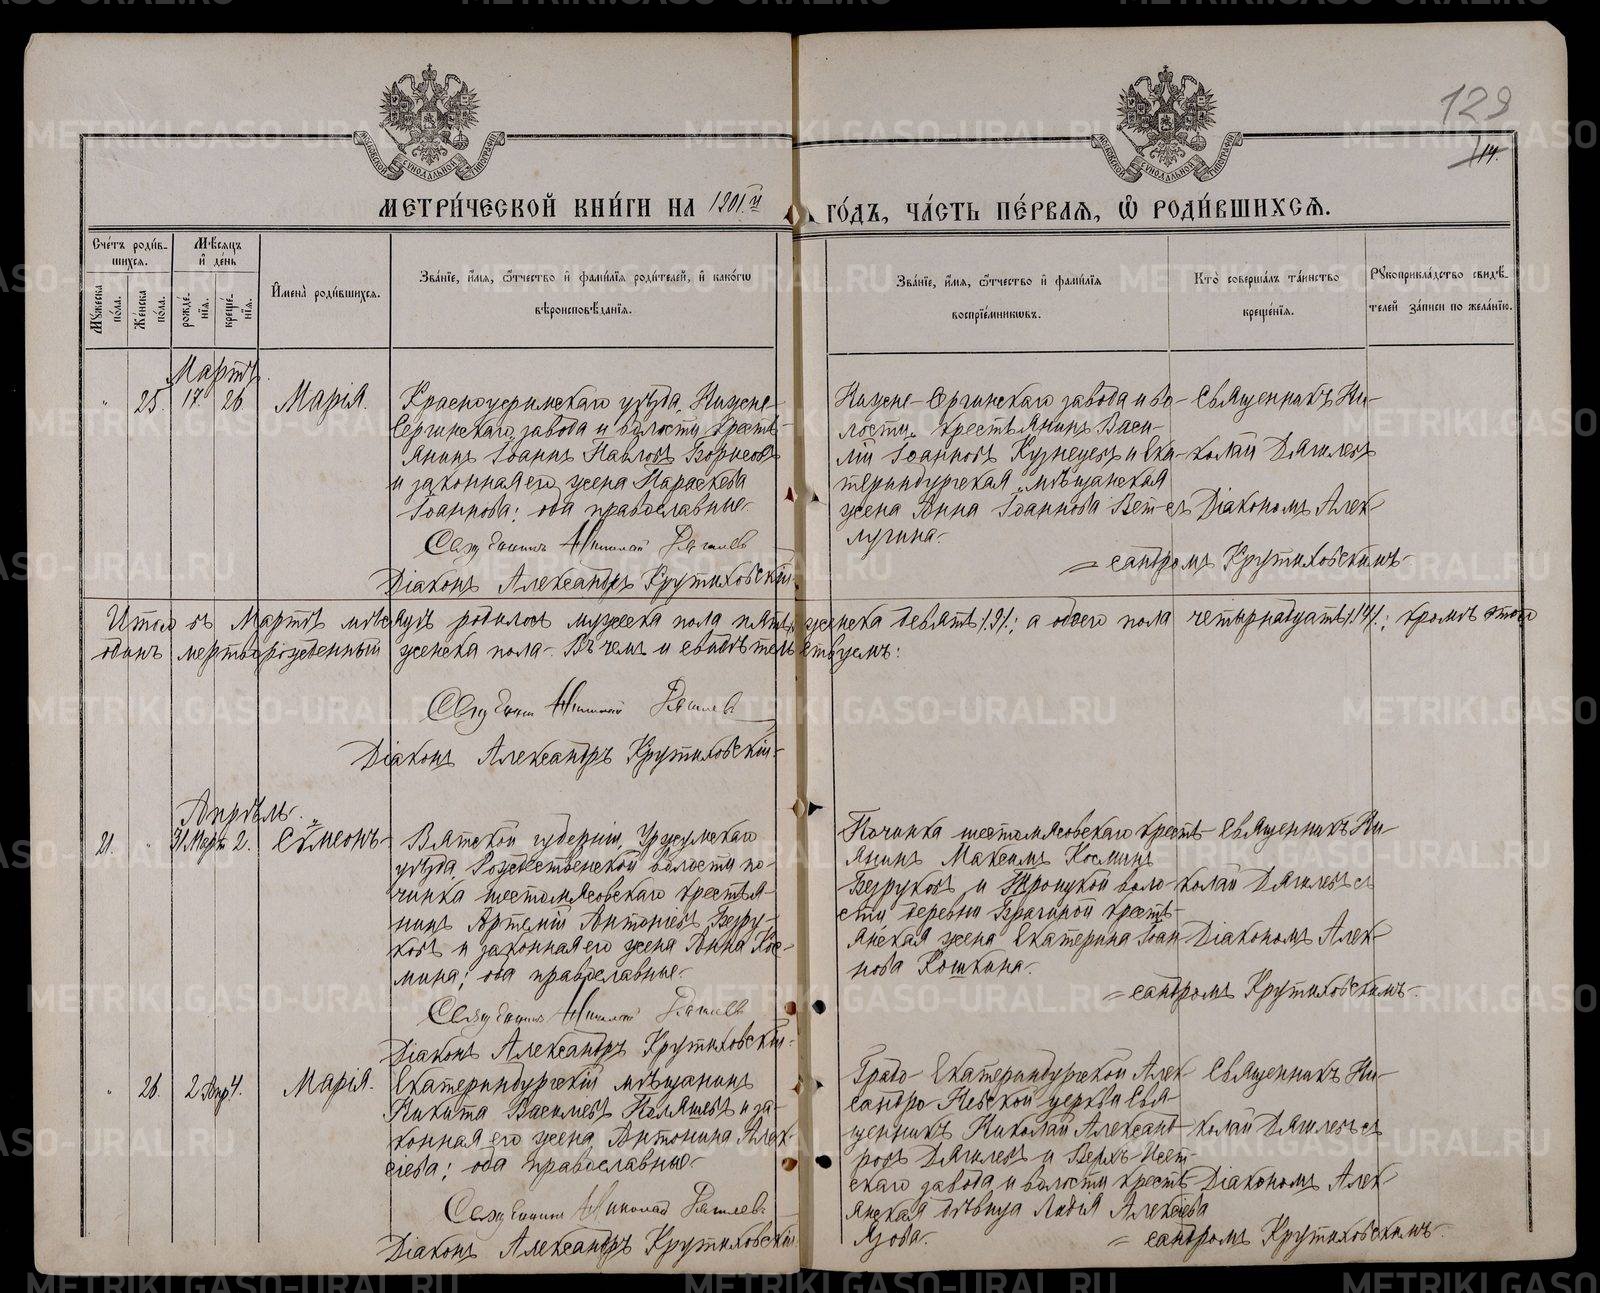 129
14.
МЕТРИ́ЧЕСКОЙ КНИ́ГИ НА 1901й ГО́ДЪ, ЧА́СТЬ ПЕ́РВАЯ, Ѽ РОДИ́ВШИХСЯ.
Сче́тъ роди́в-
шихся.
Мꙋжеска по́ла.
Же́нска по́ла.
Мѣ́сяцъ
и҆ де́нь
рожде́нїя.
креще́нїя.
И҆мена̀ роди́вшихся.
Зва́нїе, и҆́мя, ѻ҆́тчество и҆ фами́лїя роди́телей, и҆ како́гѡ
вѣроисповѣ́данїя.
Зва́нїе, и҆́мя, ѻ҆́тчество и҆ фами́лїя
воспрїе́мникѡвъ.
Кто̀ соверша́лъ та́инство
креще́нїя.
Рꙋкоприкла́дство свидѣ́-
телей за́писи по жела́нїю.
Мартъ.
" 25. 17. 26. Марія.
Красноуфимскаго уѣзда, Нижне-
Сергинскаго завода и волости кресть-
янинъ Іоаннъ Павловъ Борисовъ
и законная его жена Параскева
Іоаннова; оба православные.
Священникъ Николай Дягилевъ
Діаконъ Александръ Крутиховскій.
Нижне-Сергинскаго завода и во-
лости крестьянинъ Васи-
лій Іоанновъ Кузнецовъ и Ека-
теринбургская мѣщанская
жена Анна Іоаннова Вет-
лугина.
Священникъ Ни-
колай Дягилевъ
съ Діакономъ Алек-
=сандромъ Крутиховскимъ.
Итого въ Мартѣ мѣсяцѣ родилось мужеска пола пять, женска девять /9/; а обоего пола четырнадцать /14/; кромѣ этого
одинъ мертворожденный женска пола. Въ чемъ и свидѣтельствуемъ:
Священникъ Николай Дягилевъ
Діаконъ Александръ Крутиховскій.
Апрѣль.
21. " 31 Март. 2. Сѵмеонъ.
Вятской губерніи, Уржумскаго
уѣзда, Рождественской волости по-
чинка шестомясовскаго крестья-
нинъ Артемій Антоніевъ Безру-
ковъ и законная его жена Анна Кос-
мина; оба православные.
Священникъ Николай Дягилевъ
Діаконъ Александръ Крутиховскій.
Починка шестомясовскаго кресть-
янинъ Максимъ Косминъ
Безруковъ и Троицкой воло-
сти деревни Брагиной кресть-
янская жена Екатерина Іоан-
нова Кошкина.
Священникъ Ни-
колай Дягилевъ съ
Діакономъ Алек-
=сандромъ Крутиховскимъ.
" 26. 2 Апр. 4. Марія.
Екатеринбургскій мѣщанинъ
Никита Васильевъ Коляшевъ и за-
конная его жена Антонина Алек-
сѣева; оба православные.
Священникъ Николай Дягилевъ
Діаконъ Александръ Крутиховскій
Градо-Екатеринбургской Алек-
сандро-Невской церкви Свя-
щенникъ Николай Александ-
ровъ Дягилевъ и Верхъ-Исет-
скаго завода и волости кресть-
янская дѣвица Лидія Алексѣева
Язова.
Священникъ Ни-
колай Дягилевъ съ
Діакономъ Алек-
=сандромъ Крутиховскимъ.